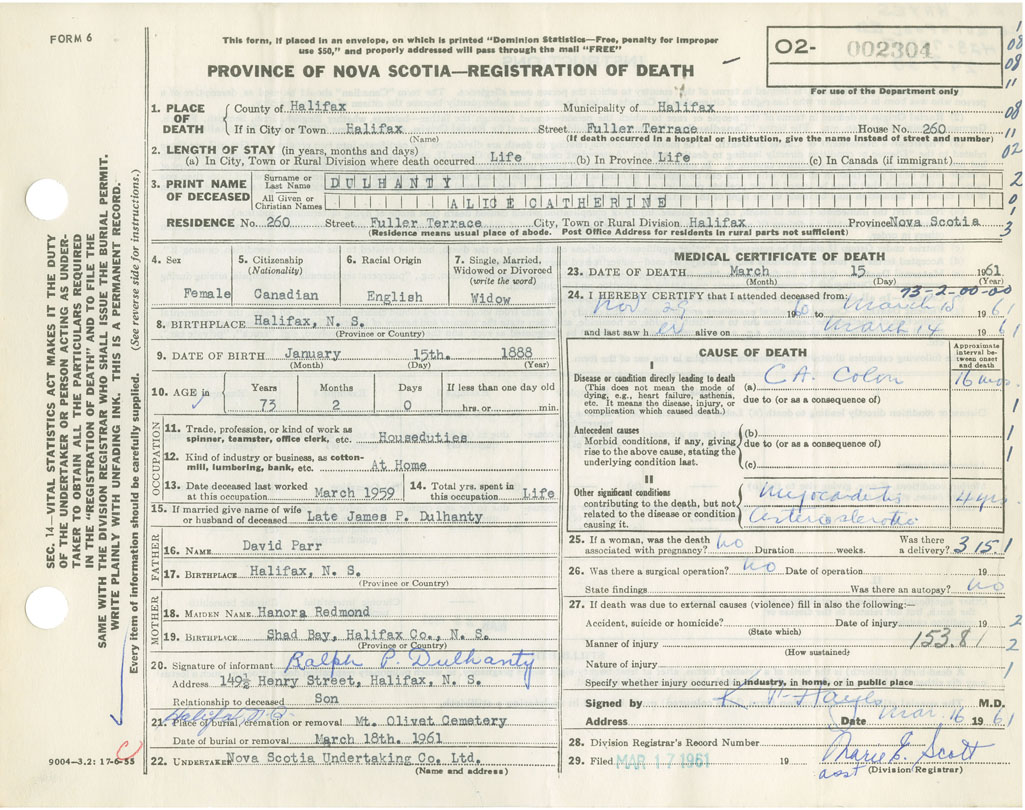 FORM 6
This form, if placed in an envelope, on which is printed "Dominion Statistics—Free, penalty for improper
use $50," and properly addressed will pass through the mail "FREE"
PROVINCE OF NOVA SCOTIA—REGISTRATION OF DEATH
02- 002304
For use of the Department only
1. PLACE OF DEATH
County of Halifax Municipality of Halifax
If in City or Town Halifax Street Fuller Terrace House No. 260
(Name) (If death occurred in a hospital or institution, give the name instead of street and number)
2. LENGTH OF STAY (in years, months and days)
(a) In City, Town or Rural Division where death occurred Life (b) In Province Life (c) In Canada (if immigrant)
3. PRINT NAME OF DECEASED
Surname or Last Name DULHANTY
All Given or Christian Names ALICE CATHERINE
RESIDENCE No. 260 Street Fuller Terrace City, Town or Rural Division Halifax Province Nova Scotia
(Residence means usual place of abode. Post Office Address for residents in rural parts not sufficient)
4. Sex
Female
5. Citizenship (Nationality)
Canadian
6. Racial Origin
English
7. Single, Married, Widowed or Divorced (write the word)
Widow
8. BIRTHPLACE Halifax, N. S.
(Province or Country)
9. DATE OF BIRTH January 15th. 1888
(Month) (Day) (Year)
10. AGE in
Years Months Days If less than one day old
73 2 0 hrs. or min.
OCCUPATION
11. Trade, profession, or kind of work as
spinner, teamster, office clerk, etc. Houseduties
12. Kind of industry or business, as cotton-
mill, lumbering, bank, etc. At Home
13. Date deceased last worked at this occupation March 1959
14. Total yrs. spent in this occupation Life
15. If married give name of wife
or husband of deceased Late James P. Dulhanty
FATHER
16. NAME David Parr
17. BIRTHPLACE Halifax, N. S.
(Province or Country)
MOTHER
18. MAIDEN NAME Hanora Redmond
19. BIRTHPLACE Shad Bay, Halifax Co., N. S.
(Province or Country)
20. Signature of informant Ralph P. Dulhanty
Address 149½ Henry Street, Halifax, N. S.
Relationship to deceased Son
21. Place of burial, cremation or removal Mt. Olivet Cemetery
Date of burial or removal March 18th. 1961
22. UNDERTAKER Nova Scotia Undertaking Co. Ltd.
(Name and address)
MEDICAL CERTIFICATE OF DEATH
23. DATE OF DEATH March 15 1961
(Month) (Day) (Year)
73-2-00-00
24. I HEREBY CERTIFY that I attended deceased from:
Nov 29 1960 to March 15 1961
and last saw her alive on March 14 1961
CAUSE OF DEATH
Approximate interval between onset and death
I
Disease or condition directly leading to death (a) CA. Colon 16 mos.
(This does not mean the mode of
dying, e.g., heart failure, asthenia,
etc. It means the disease, injury, or
complication which caused death.)
due to (or as a consequence of)
Antecedent causes (b)
Morbid conditions, if any, giving
rise to the above cause, stating the
underlying condition last.
due to (or as a consequence of)
(c)
II
Other significant conditions
contributing to the death, but not
related to the disease or condition
causing it.
25. If a woman, was the death
associated with pregnancy? no Duration weeks. Was there a delivery? 315.1
26. Was there a surgical operation? no Date of operation 19
State findings Was there an autopsy? no
27. If death was due to external causes (violence) fill in also the following:—
Accident, suicide or homicide? Date of injury 19
(State which)
Manner of injury 153.81
(How sustained)
Nature of injury
Specify whether injury occurred in industry, in home, or in public place
Signed by M.D.
Address Date Mar 16 1961
28. Division Registrar's Record Number
29. Filed MAR 17 1961 19 Marie E. Scott
asst (Division Registrar)
SEC. 14—VITAL STATISTICS ACT MAKES IT THE DUTY
OF THE UNDERTAKER OR PERSON ACTING AS UNDER-
TAKER TO OBTAIN ALL THE PARTICULARS REQUIRED
IN THE "REGISTRATION OF DEATH" AND TO FILE THE
SAME WITH THE DIVISION REGISTRAR WHO SHALL ISSUE THE BURIAL PERMIT.
WRITE PLAINLY WITH UNFADING INK. THIS IS A PERMANENT RECORD.
Every item of information should be carefully supplied. (See reverse side for instructions.)
9004—3.2: 17-6-55